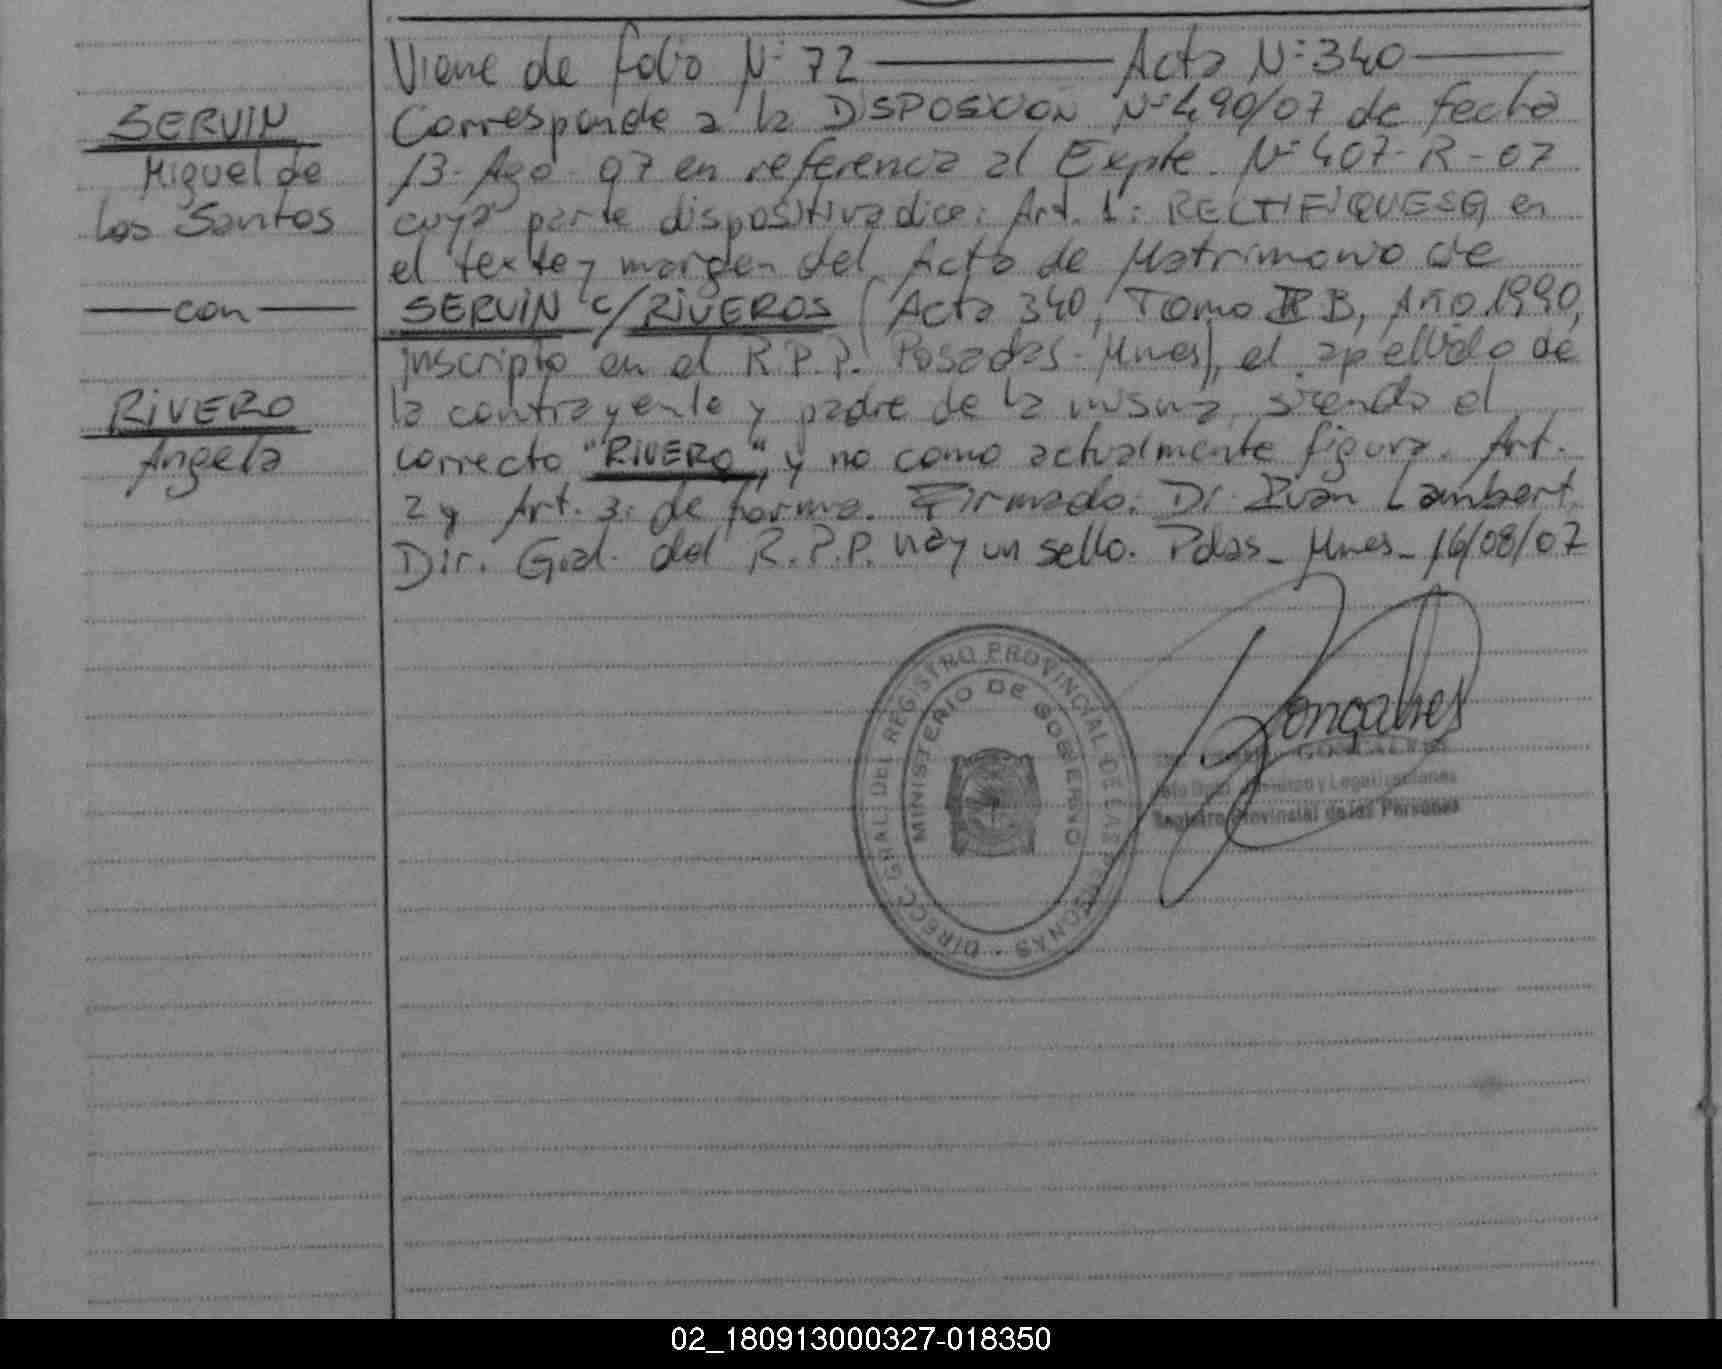 Viene de folio N° 72 ——— Acta N° 340 ———
SERVIN
Miguel de
los Santos
— con —
RIVERO
Angela
Corresponde a la DISPOSICION N° 490/07 de fecha
13-Ago-07 en referencia al Expte. N° 407-R-07
cuya parte dispositiva dice: Art. 1: RECTIFIQUESE, en
el texto y margen del Acta de Matrimonio de
SERVIN c/ RIVEROS (Acta 340, Tomo II B, Año 1990,
inscripto en el R.P.P. Posadas-Mnes), el apellido de
la contrayente y padre de la misma, siendo el
correcto "RIVERO", y no como actualmente figura. Art.
2 y Art. 3: de forma. Firmado: Dr. Ivan Lambert
Dir. Gral. del R.P.P. hay un sello. Pdas_ Mnes_ 16/08/07
DIRECC. GRAL. DEL REGISTRO PROVINCIAL DE LAS PERSONAS
MINISTERIO DE GOBIERNO
Gonçalves
y Legalizaciones
Registro Provincial de las Personas
02_180913000327-018350